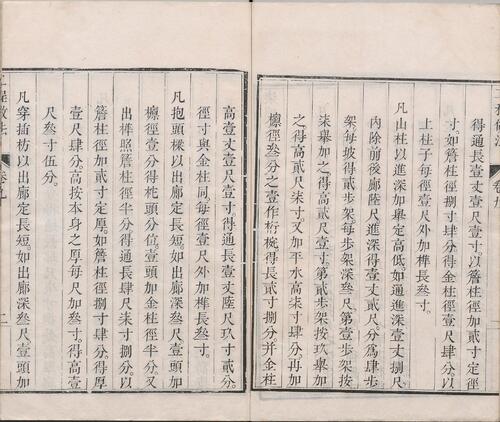 通長壹丈壹尺壹寸。以簷柱徑加貳寸定徑
寸。如簷柱徑捌寸肆分得金柱徑壹尺肆分。以
上柱子每徑壹尺外加榫長叁寸。
凡山柱以進深加舉定高低如通進深壹丈捌尺
內除前後廊陸尺進深得壹丈貳尺。分爲肆步
架每坡得貳步架每步架深叁尺。第壹步架按
柒舉加之得高貳尺壹寸。第貳步架按玖舉加
之得高貳尺柒寸。又加平水高柒寸肆分。再加
檁徑叁分之壹作桁椀得長貳寸捌分。并金柱
高壹丈壹尺壹寸得通長壹丈陸尺玖寸貳分。
徑寸與金柱同。每徑壹尺外加榫長叁寸。
凡抱頭樑以出廊定長短。如出廊深叁尺。壹頭加
檁徑壹分得柁頭分位。壹頭加金柱徑半分。又
出榫照簷柱徑半分得通長肆尺柒寸捌分。以
簷柱徑加貳寸定厚。如簷柱徑捌寸肆分得厚
壹尺肆分。高按本身之厚。每尺加叁寸。得高壹
尺叁寸伍分。
凡穿插枋以出廊定長短。如出廊深叁尺。壹頭加